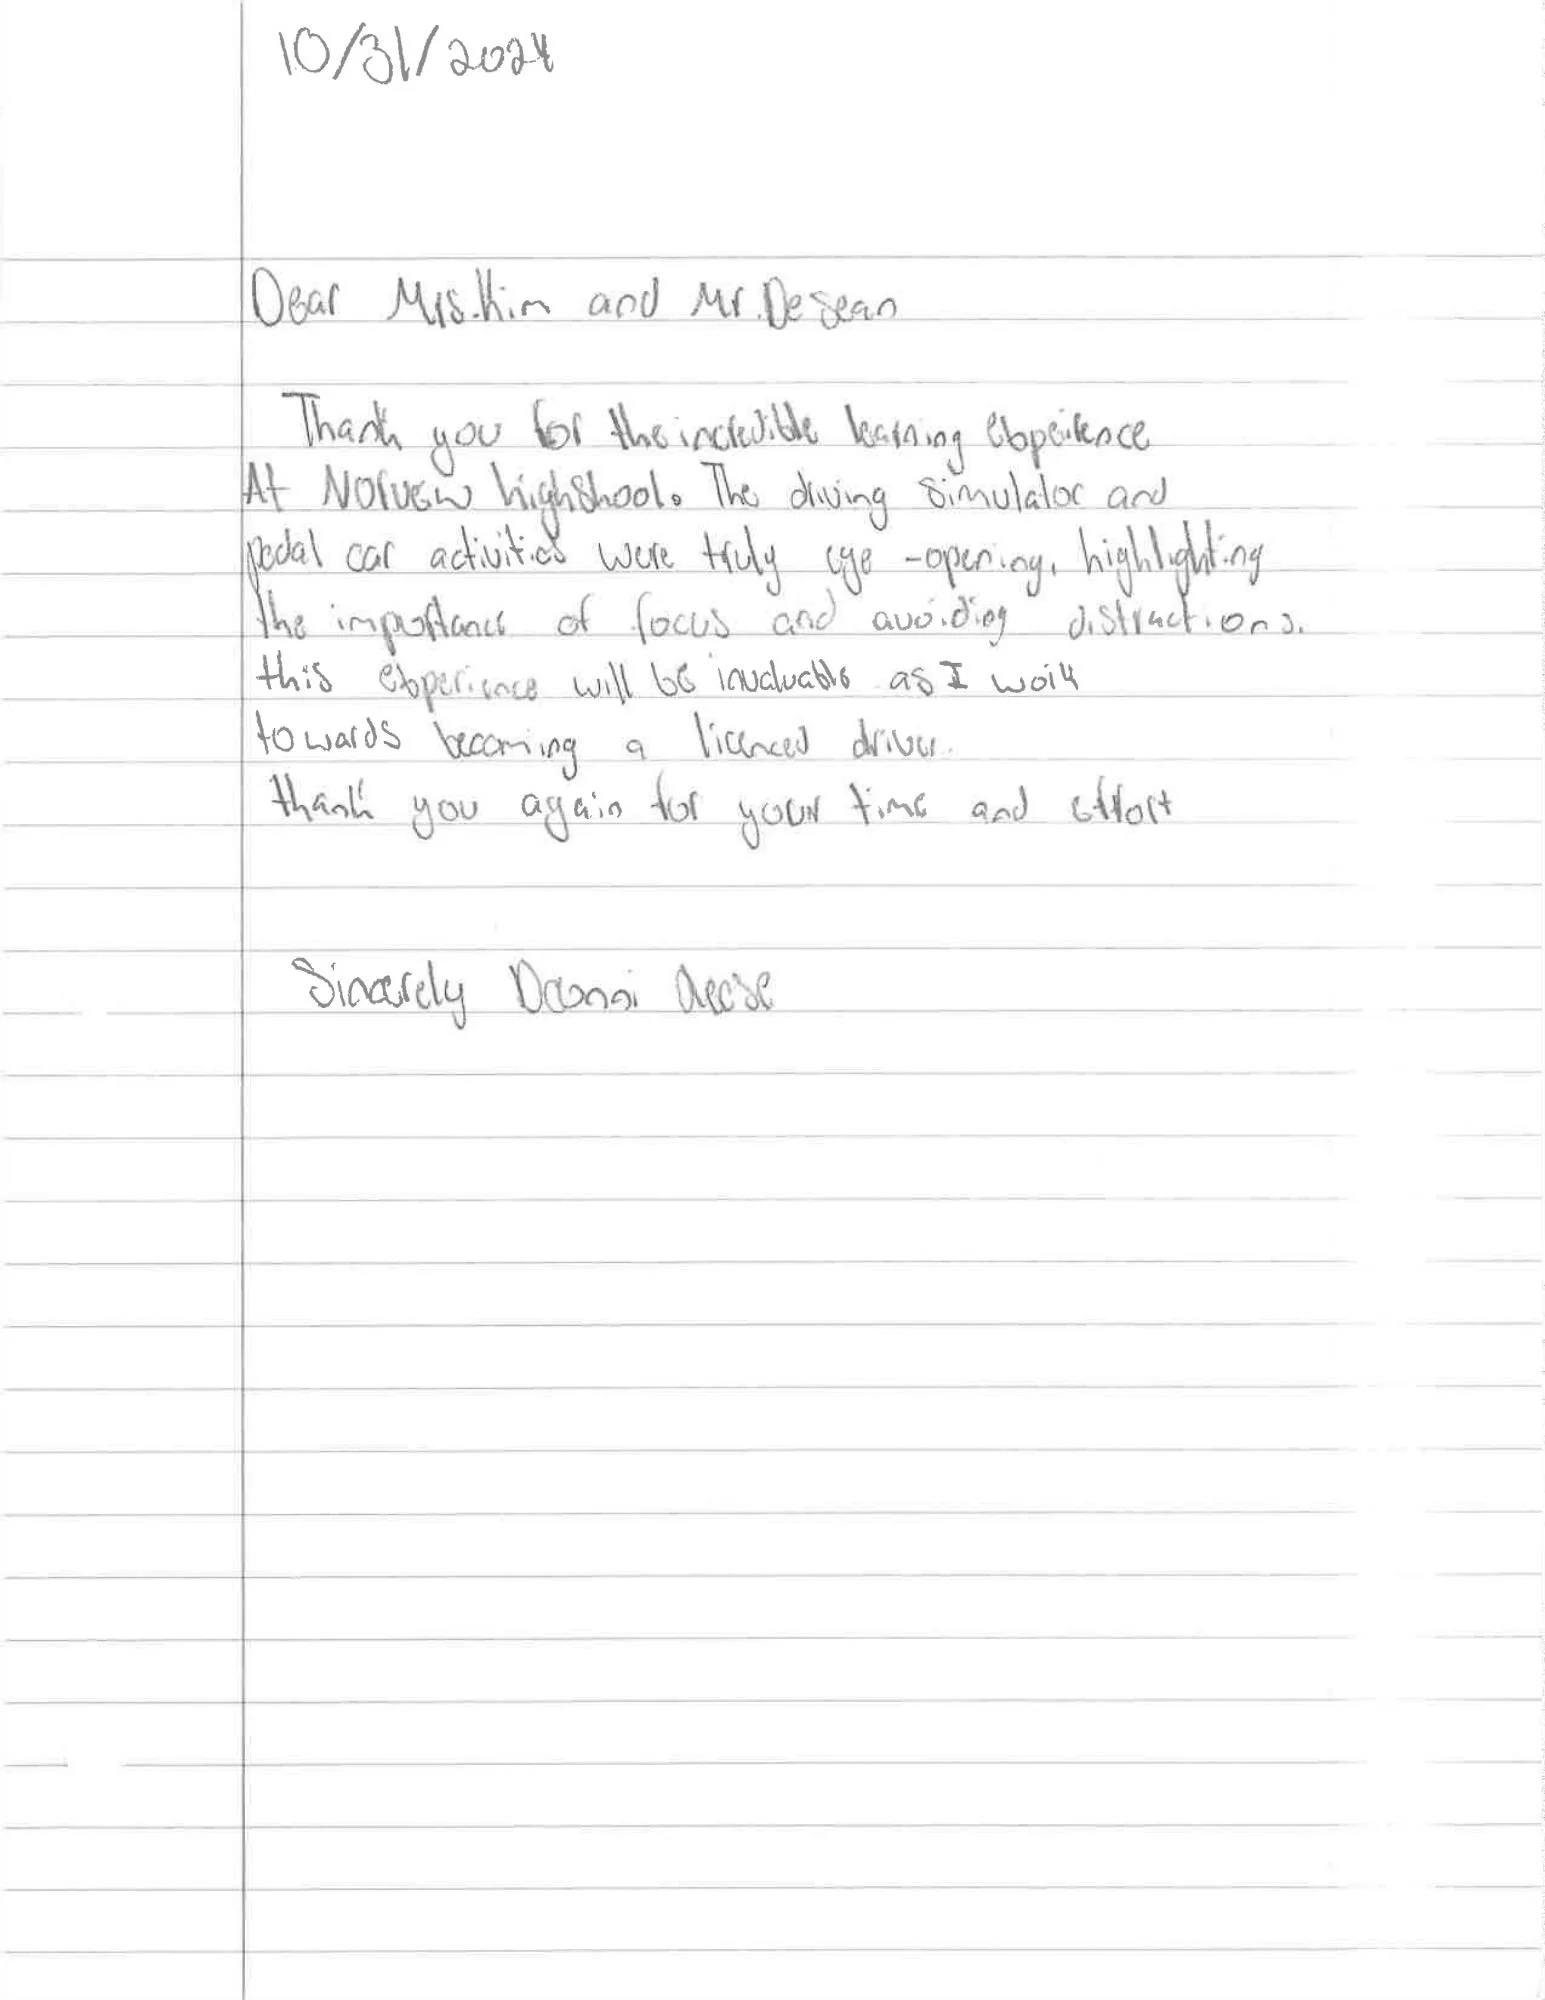 10/31/2024
Dear Mrs.Kim and Mr.Desean
Thank you for the incredible learning experience
At Norvew highshool. The driving simulator and
pedal car activities were truly eye -opening, highlighting
the importance of focus and avoiding distractions.
this experience will be invaluable as I work
towards becoming a licenced driver.
thank you again for your time and effort
Sincerely